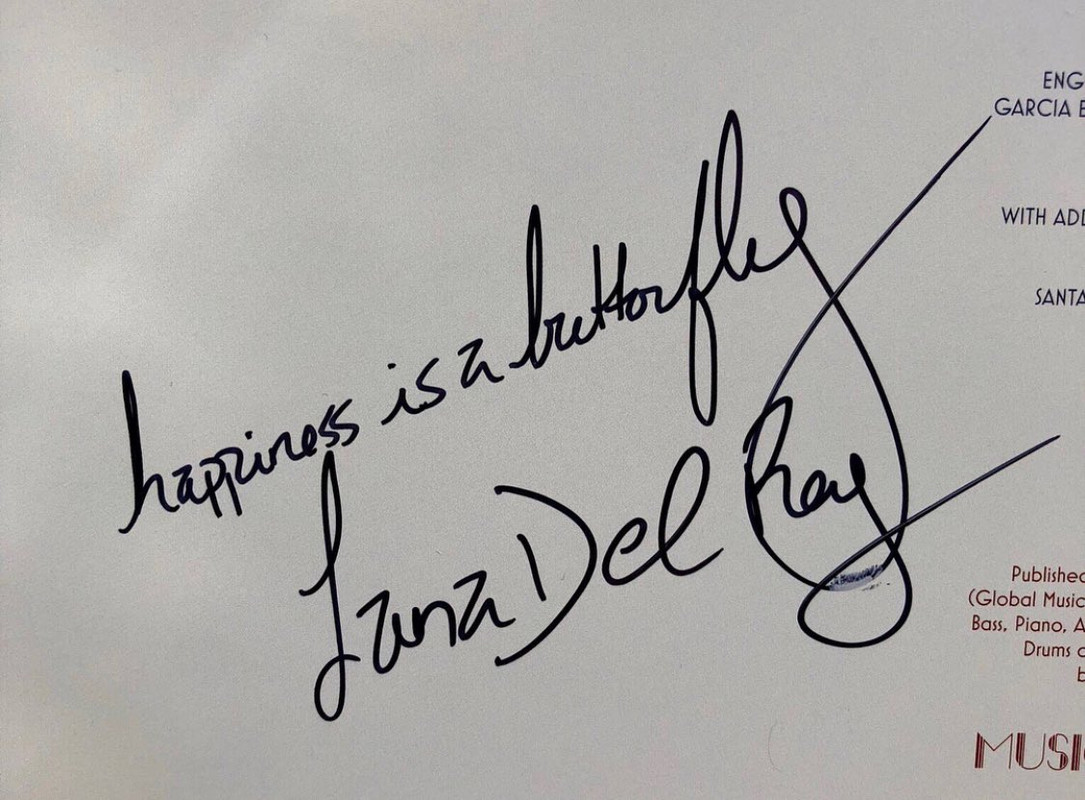 ENG
GARCIA E
WITH ADD
SANTA
happiness is a butterfly
Lana Del Rey
Published
(Global Music
Bass, Piano, A
Drums o
b
MUSI